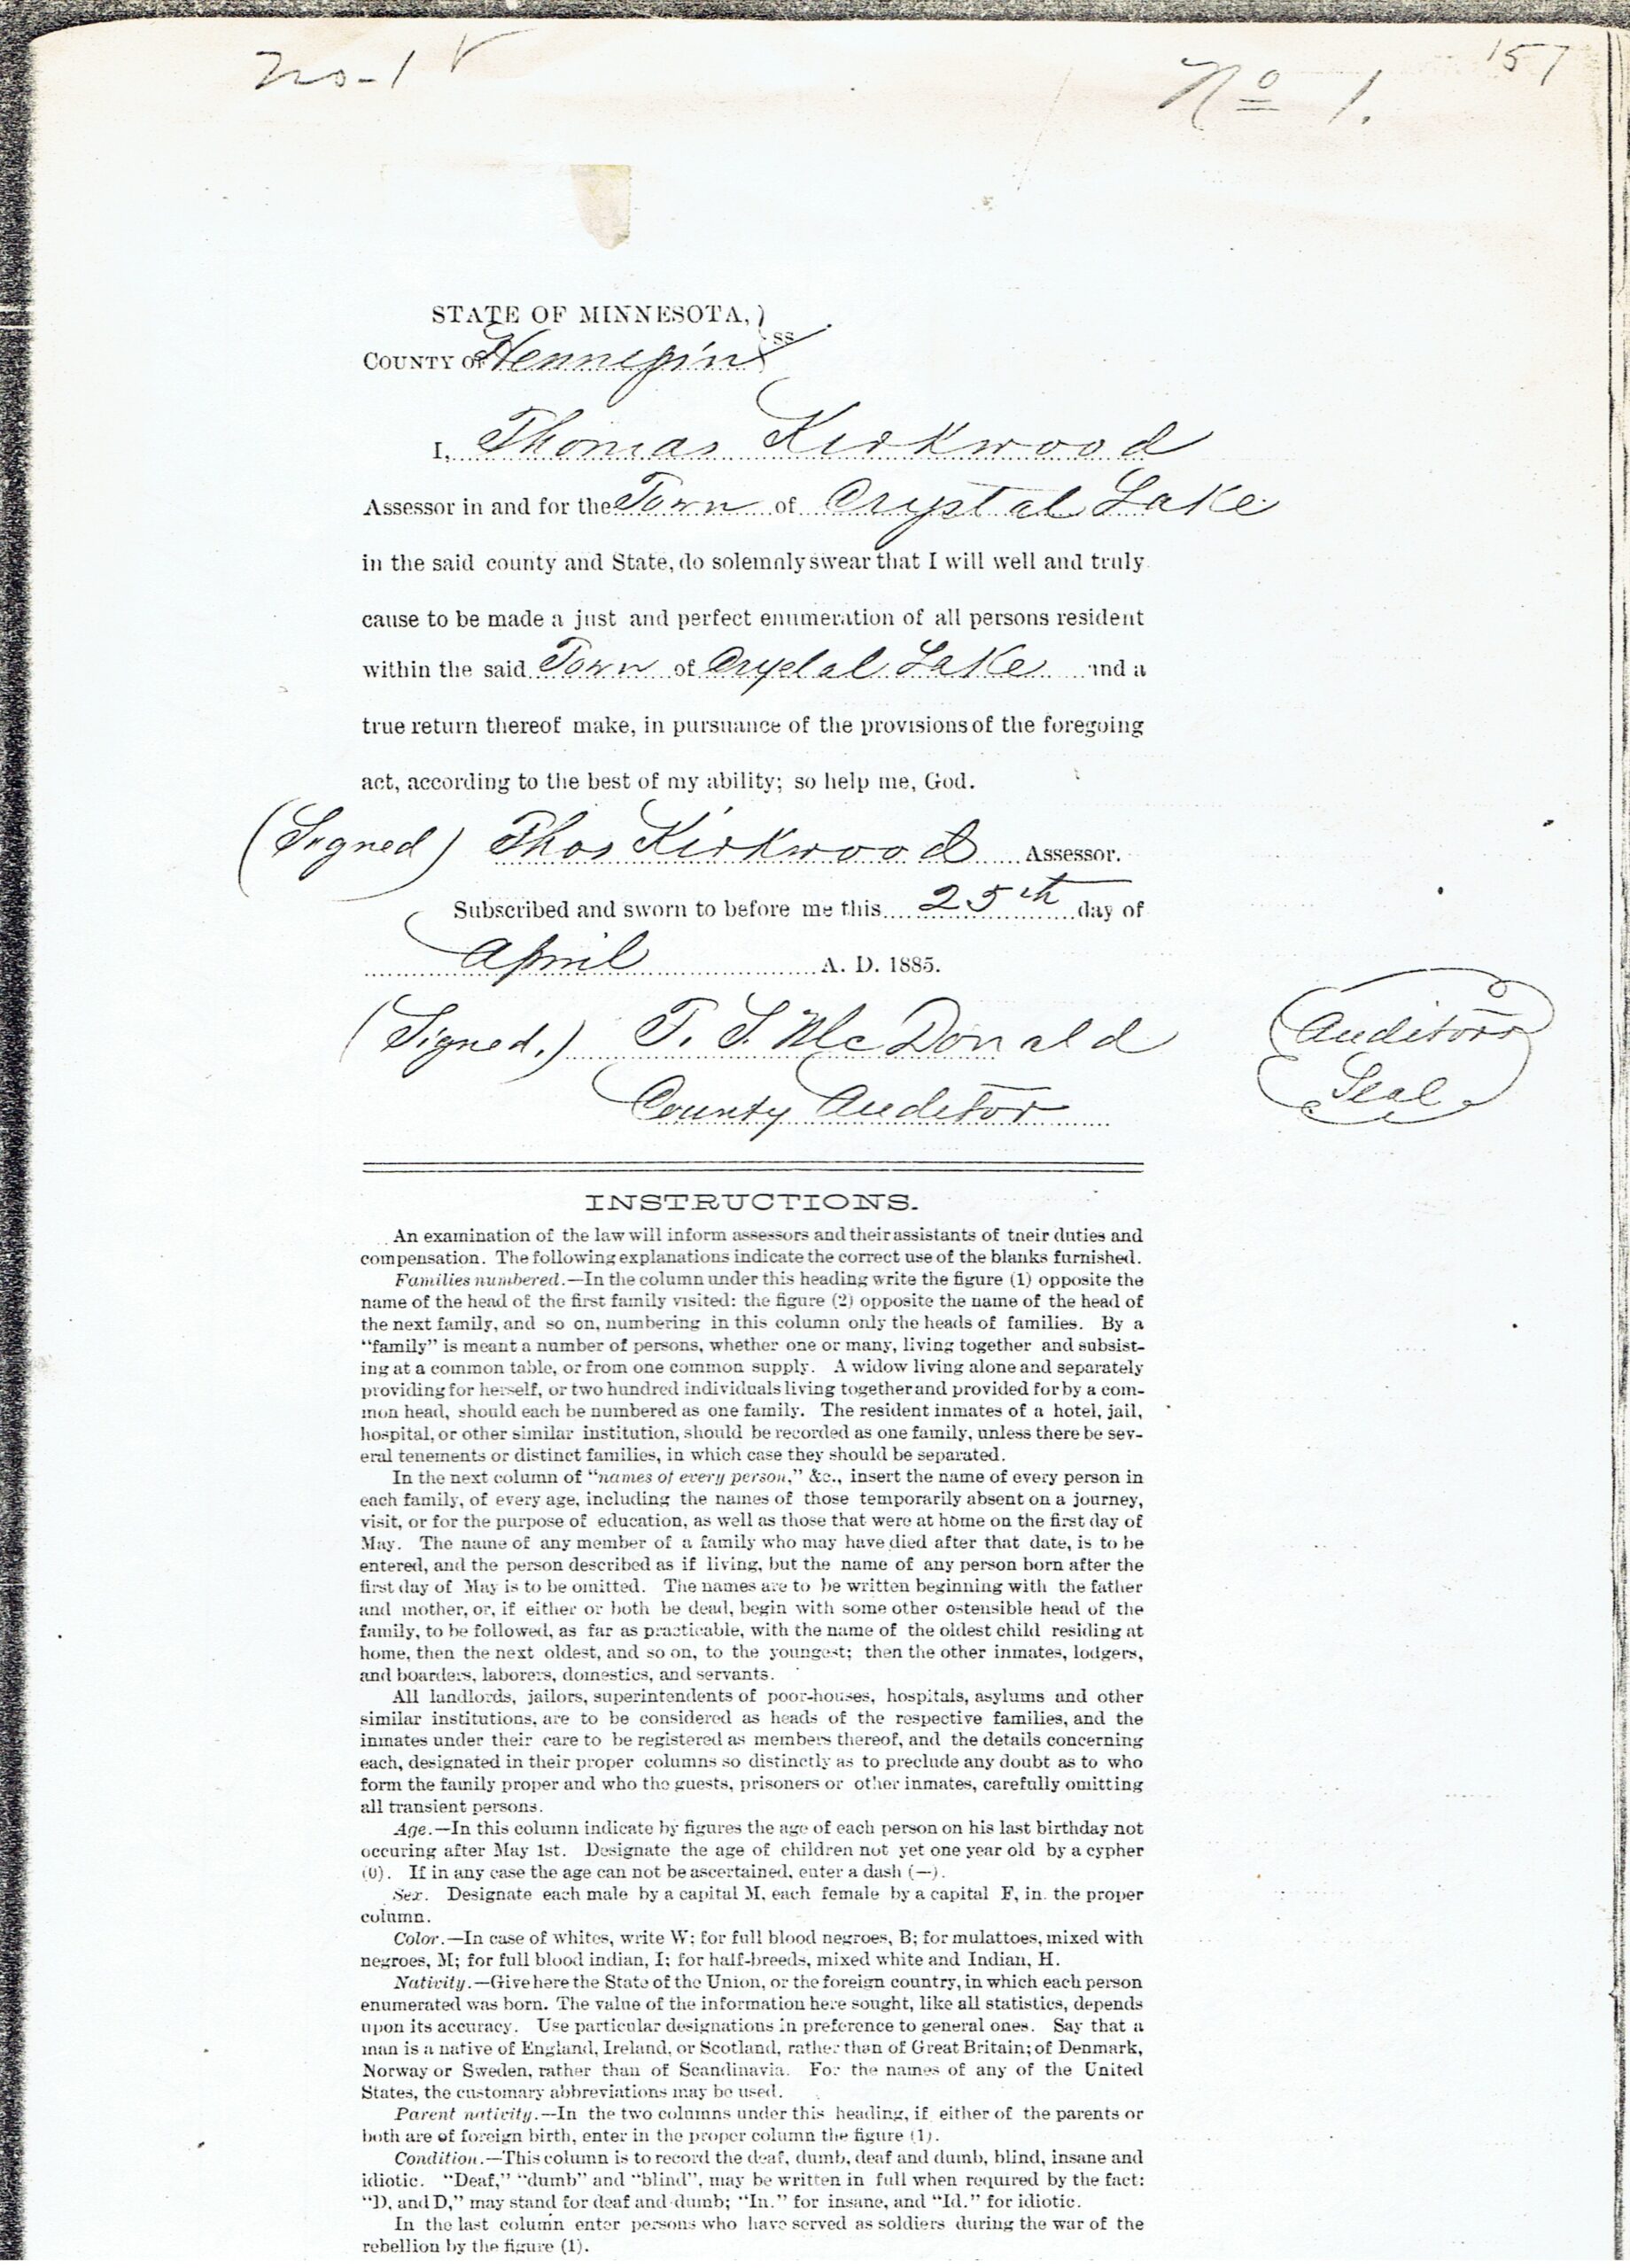 No-1 ✓
No 1.
157
STATE OF MINNESOTA, )
COUNTY OF Hennepin ss
I, Thomas Kirkwood
Assessor in and for the Town of Crystal Lake
in the said county and State, do solemnly swear that I will well and truly
cause to be made a just and perfect enumeration of all persons resident
within the said Town of Crystal Lake and a
true return thereof make, in pursuance of the provisions of the foregoing
act, according to the best of my ability; so help me, God.
(Signed) Thos Kirkwood Assessor.
Subscribed and sworn to before me this 25th day of
April A. D. 1885.
(Signed.) T. S. McDonald
County Auditor
Auditors
Seal
INSTRUCTIONS.
An examination of the law will inform assessors and their assistants of their duties and
compensation. The following explanations indicate the correct use of the blanks furnished.
Families numbered.—In the column under this heading write the figure (1) opposite the
name of the head of the first family visited: the figure (2) opposite the name of the head of
the next family, and so on, numbering in this column only the heads of families. By a
"family" is meant a number of persons, whether one or many, living together and subsist-
ing at a common table, or from one common supply. A widow living alone and separately
providing for herself, or two hundred individuals living together and provided for by a com-
mon head, should each be numbered as one family. The resident inmates of a hotel, jail,
hospital, or other similar institution, should be recorded as one family, unless there be sev-
eral tenements or distinct families, in which case they should be separated.
In the next column of "names of every person," &c., insert the name of every person in
each family, of every age, including the names of those temporarily absent on a journey,
visit, or for the purpose of education, as well as those that were at home on the first day of
May. The name of any member of a family who may have died after that date, is to be
entered, and the person described as if living, but the name of any person born after the
first day of May is to be omitted. The names are to be written beginning with the father
and mother, or, if either or both be dead, begin with some other ostensible head of the
family, to be followed, as far as practicable, with the name of the oldest child residing at
home, then the next oldest, and so on, to the youngest; then the other inmates, lodgers,
and boarders, laborers, domestics, and servants.
All landlords, jailors, superintendents of poor-houses, hospitals, asylums and other
similar institutions, are to be considered as heads of the respective families, and the
inmates under their care to be registered as members thereof, and the details concerning
each, designated in their proper columns so distinctly as to preclude any doubt as to who
form the family proper and who the guests, prisoners or other inmates, carefully omitting
all transient persons.
Age.—In this column indicate by figures the age of each person on his last birthday not
occuring after May 1st. Designate the age of children not yet one year old by a cypher
(0). If in any case the age can not be ascertained, enter a dash (—).
Sex. Designate each male by a capital M, each female by a capital F, in the proper
column.
Color.—In case of whites, write W; for full blood negroes, B; for mulattoes, mixed with
negroes, M; for full blood indian, I; for half-breeds, mixed white and Indian, H.
Nativity.—Give here the State of the Union, or the foreign country, in which each person
enumerated was born. The value of the information here sought, like all statistics, depends
upon its accuracy. Use particular designations in preference to general ones. Say that a
man is a native of England, Ireland, or Scotland, rather than of Great Britain; of Denmark,
Norway or Sweden, rather than of Scandinavia. For the names of any of the United
States, the customary abbreviations may be used.
Parent nativity.—In the two columns under this heading, if either of the parents or
both are of foreign birth, enter in the proper column the figure (1).
Condition.—This column is to record the deaf, dumb, deaf and dumb, blind, insane and
idiotic. "Deaf," "dumb" and "blind", may be written in full when required by the fact:
"D, and D," may stand for deaf and dumb; "In." for insane, and "Id." for idiotic.
In the last column enter persons who have served as soldiers during the war of the
rebellion by the figure (1).